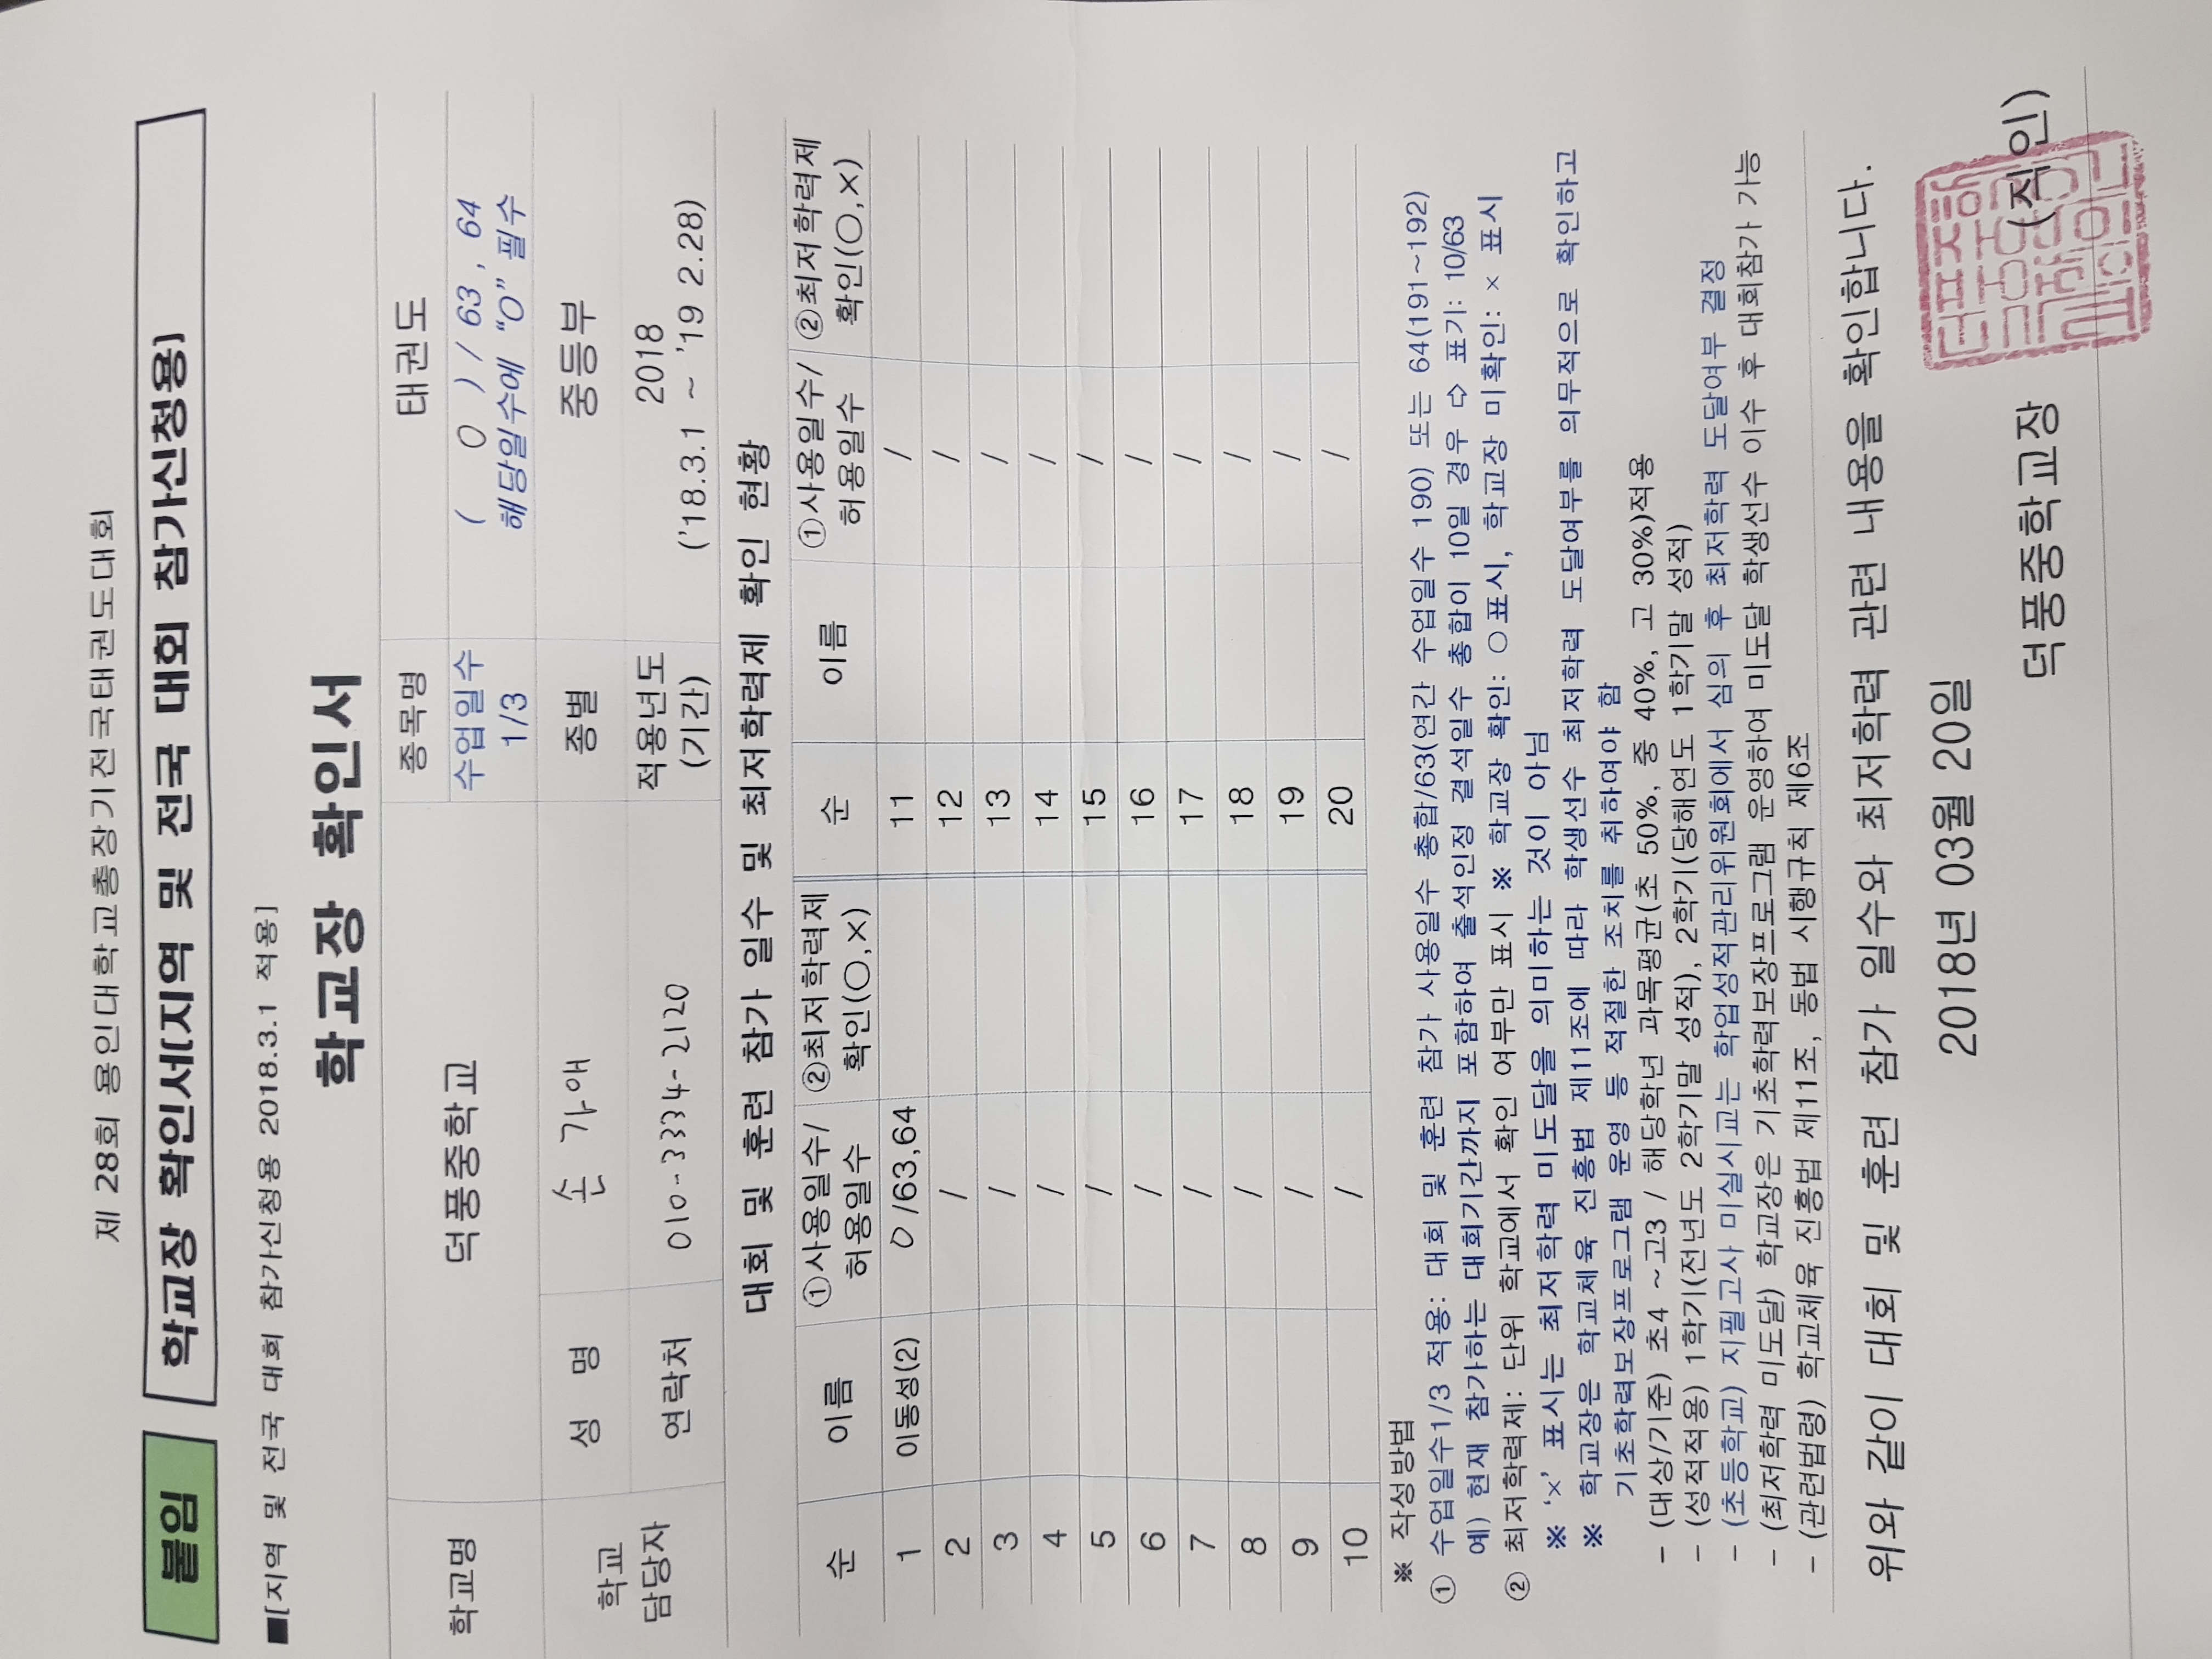 제 28회 용인대학교총장기전국태권도대회
붙임 학교장 확인서(지역 및 전국 대회 참가신청용)
■[지역 및 전국 대회 참가신청용 2018.3.1 적용]
학교장 확인서
학교명 덕풍중학교 종목명 태권도
수업일수 1/3 ( 0 ) / 63 , 64
해당일수에 “O” 필수
학교 담당자 성 명 손 가애 종별 중등부
연락처 010-3334-2120 적용년도 (기간) 2018
('18.3.1 ~ '19 2.28)
대회 및 훈련 참가 일수 및 최저학력제 확인 현황
순 이름 ①사용일수/허용일수 ②최저학력제 확인(○,×) 순 이름 ①사용일수/허용일수 ②최저학력제 확인(○,×)
1 이동성(2) 0 /63,64 11 /
2 / 12 /
3 / 13 /
4 / 14 /
5 / 15 /
6 / 16 /
7 / 17 /
8 / 18 /
9 / 19 /
10 / 20 /
※ 작성방법
① 수업일수1/3 적용: 대회 및 훈련 참가 사용일수 총합/63(연간 수업일수 190) 또는 64(191~192)
예) 현재 참가하는 대회기간까지 포함하여 출석인정 결석일수 총합이 10일 경우 ⇨ 표기: 10/63
② 최저학력제: 단위 학교에서 확인 여부만 표시 ※ 학교장 확인: ○표시, 학교장 미확인: × 표시
※ ‘×’ 표시는 최저학력 미도달을 의미하는 것이 아님
※ 학교장은 학교체육 진흥법 제11조에 따라 학생선수 최저학력 도달여부를 의무적으로 확인하고
기초학력보장프로그램 운영 등 적절한 조치를 취하여야 함
- (대상/기준) 초4 ~고3 / 해당학년 과목평균(초 50%, 중 40%, 고 30%)적용
- (성적적용) 1학기(전년도 2학기말 성적), 2학기(당해연도 1학기말 성적)
- (초등학교) 지필고사 미실시교는 학업성적관리위원회에서 심의 후 최저학력 도달여부 결정
- (최저학력 미도달) 학교장은 기초학력보장프로그램 운영하여 미도달 학생선수 이수 후 대회참가 가능
- (관련법령) 학교체육 진흥법 제11조, 동법 시행규칙 제6조
위와 같이 대회 및 훈련 참가 일수와 최저학력 관련 내용을 확인합니다.
2018년 03월 20일
덕풍중학교장 (직인)